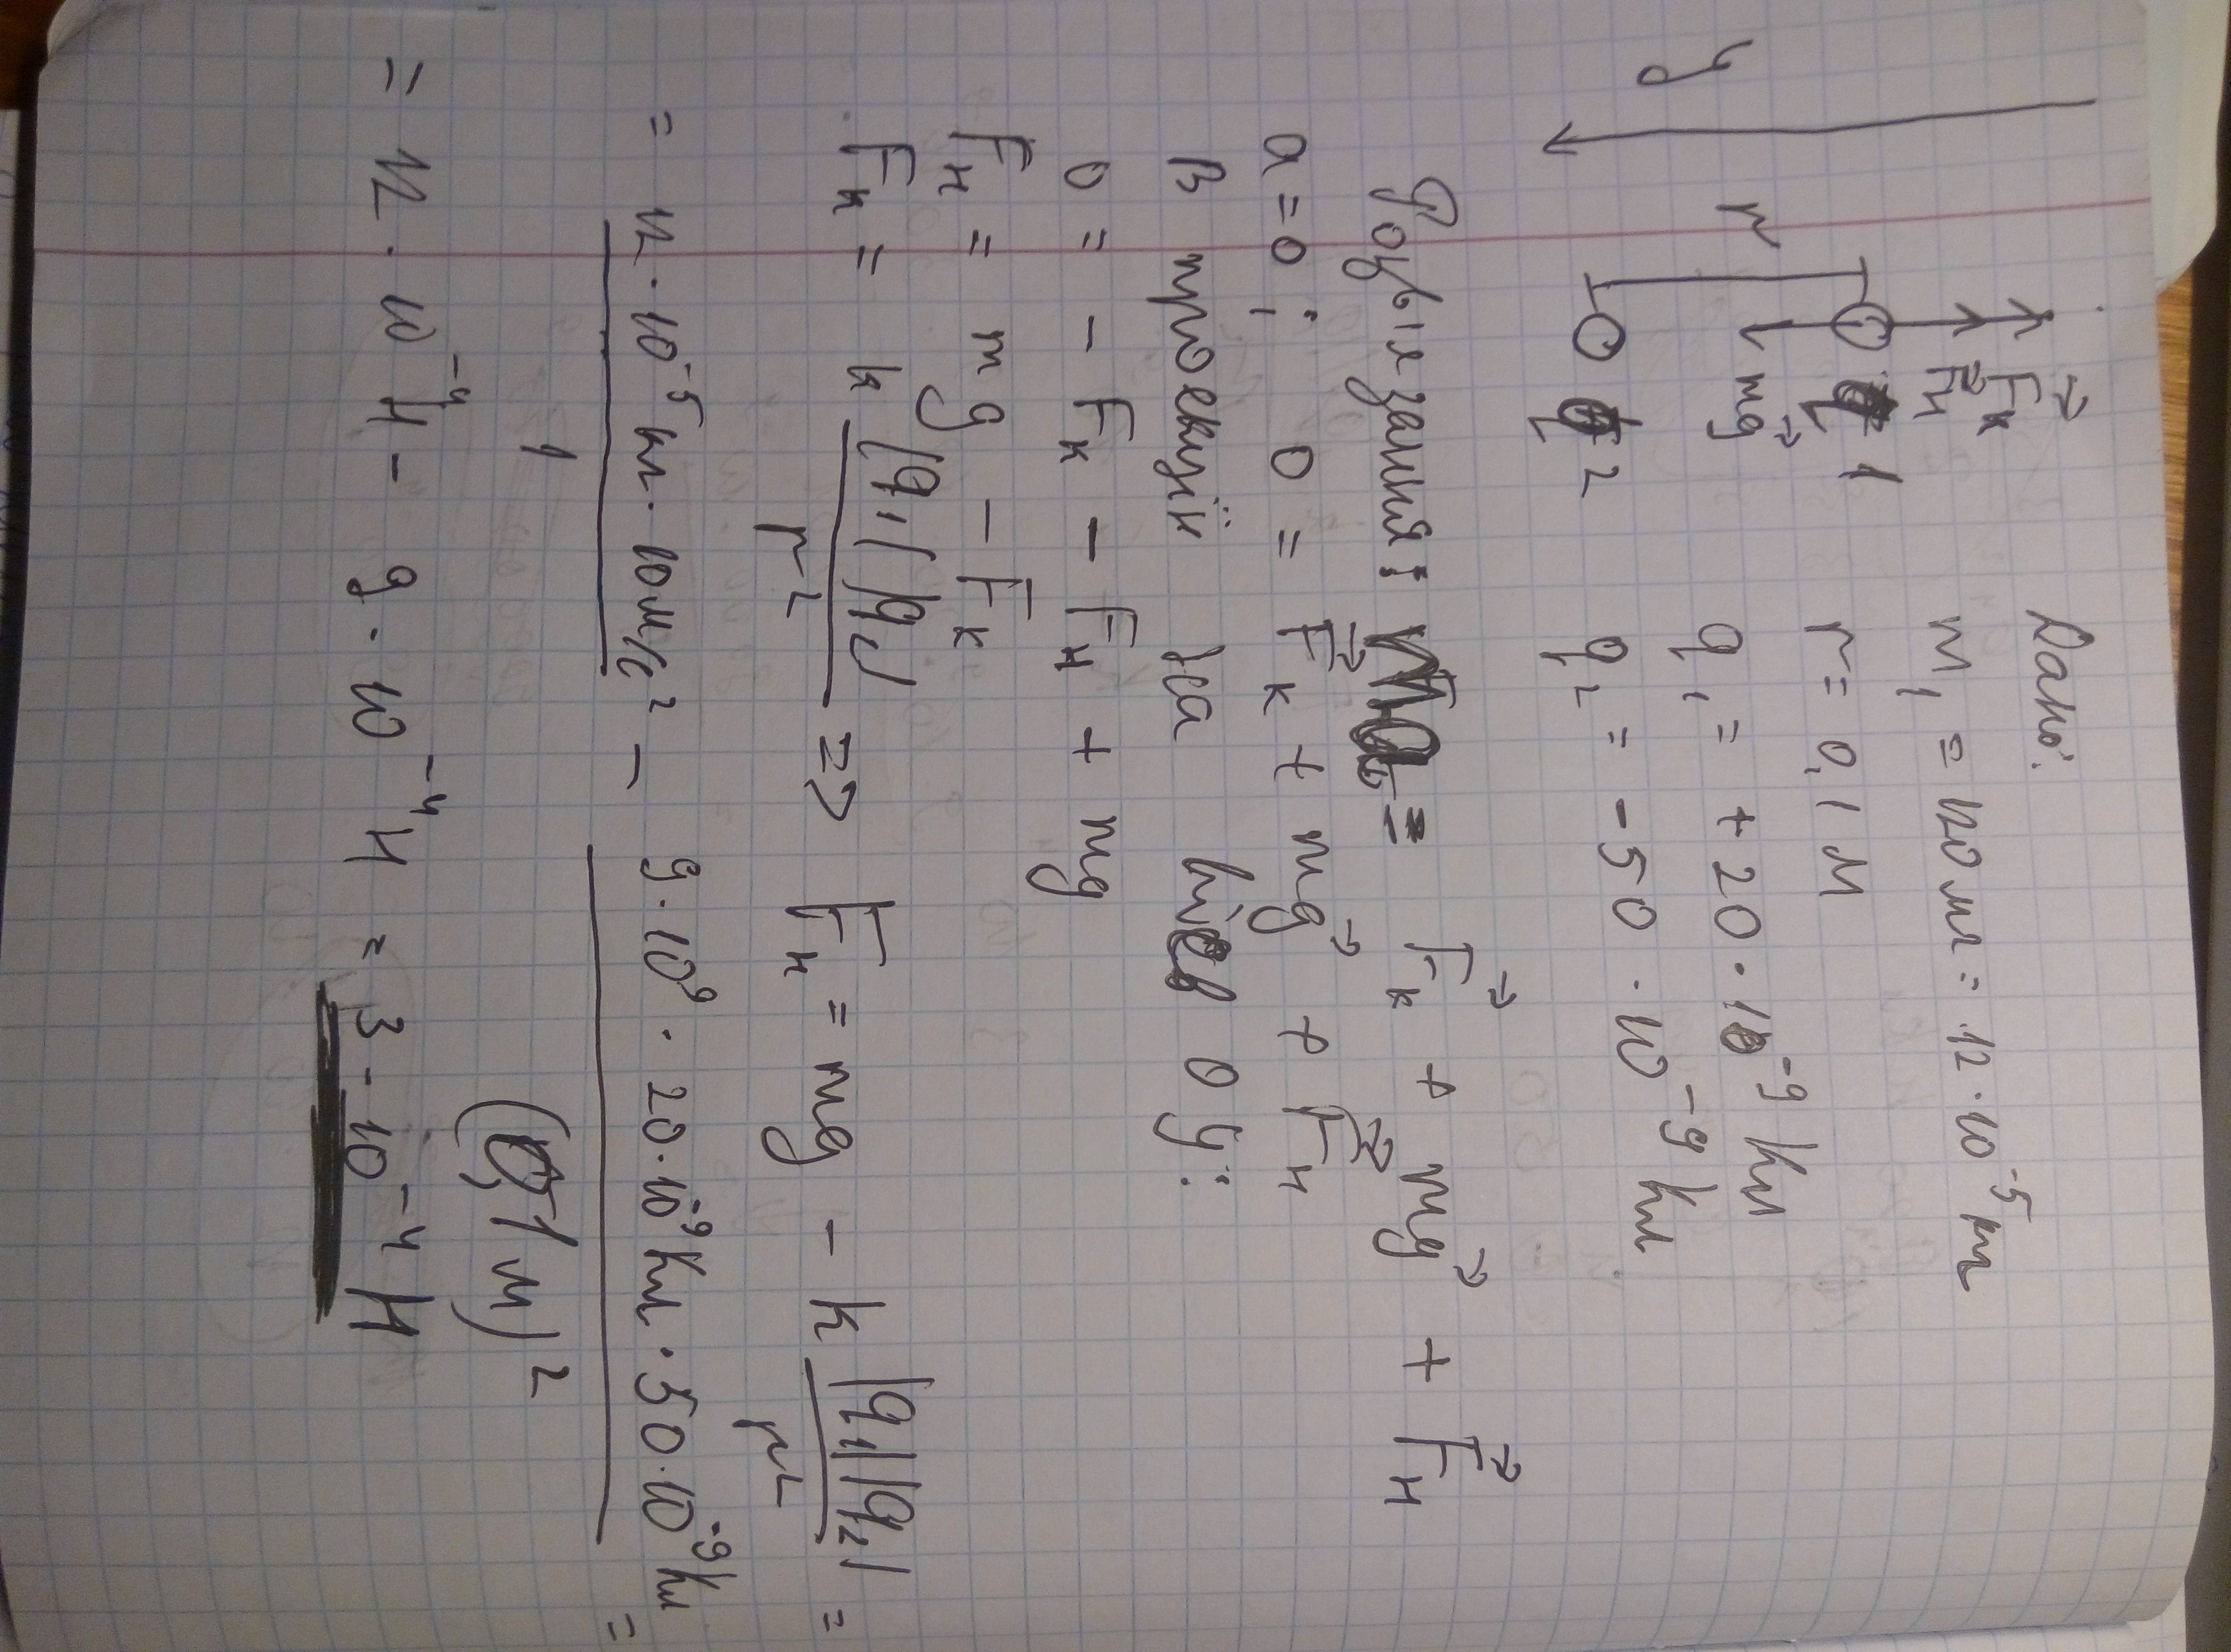 Дано:
m₁ = 120 мг = 12·10⁻⁵ кг
r = 0,1 м
q₁ = +20·10⁻⁹ Кл
q₂ = -50·10⁻⁹ Кл
y
r
F⃗к
F⃗н
1
mg⃗
2
Розв'язання: = F⃗к + mg⃗ + F⃗н
a = 0; 0 = F⃗к + mg⃗ + F⃗н
В проекції на вісь Oy:
0 = - Fк - Fн + mg
Fн = mg - Fк
Fк = k |q₁||q₂| / r² => Fн = mg - k |q₁||q₂| / r² =
= 12·10⁻⁵ кг·10 м/с² / 1 - 9·10⁹·20·10⁻⁹ Кл·50·10⁻⁹ Кл / (0,1 м)² =
= 12·10⁻⁴ Н - 9·10⁻⁴ Н = 3·10⁻⁴ Н